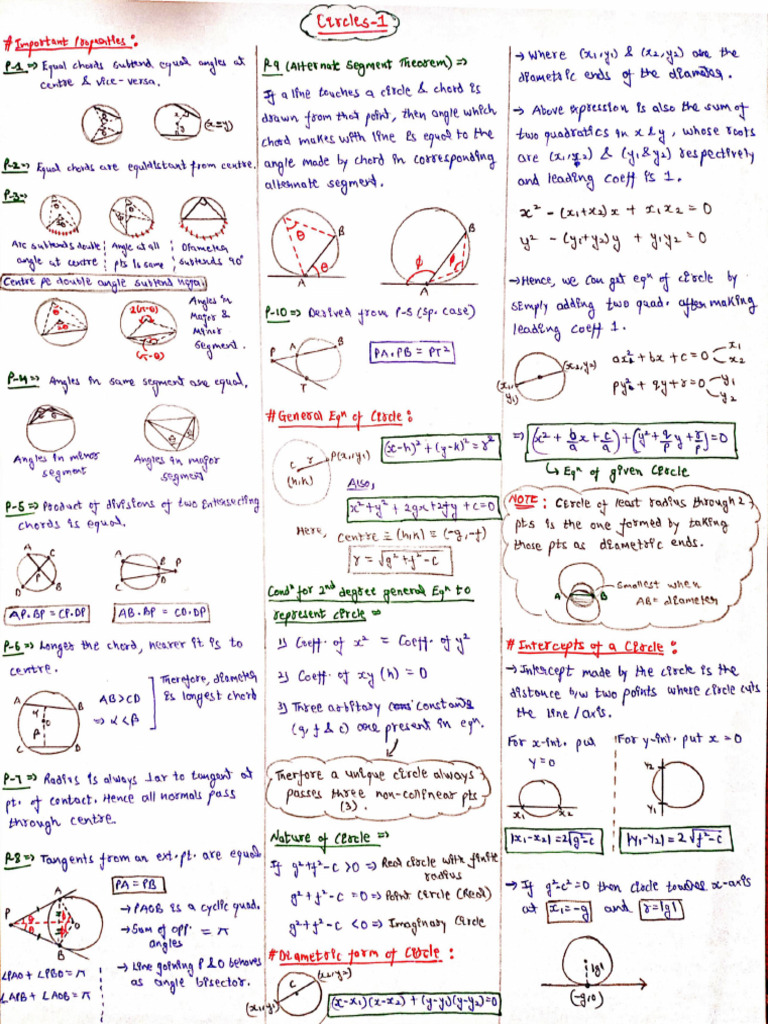 Circles-1
# Important Properties :
P-1 => Equal chords subtend equal angles at
centre & vice-versa.
(x=y)
P-2 => Equal chords are equidistant from centre.
P-3 =>
Arc subtends double
angle at centre
Angle at all
pts is same
Diameter
subtends 90°
Centre pe double angle subtend hoga.
2(π-θ)
(π-θ)
Angles in
Major &
minor
segment.
P-4 => Angles in same segment are equal.
Angles in minor
segment
Angles in major
segment
P-5 => Product of divisions of two intersecting
chords is equal.
A
C
P
D
B
A
B
P
C
D
AP.BP = CP.DP
AB.BP = CD.DP
P-6 => Longer the chord, nearer it is to
centre.
A
B
α
O
β
C
D
AB > CD
=> α < β
Therefore, diameter
is longest chord
P-7 => Radius is always ⊥ar to tangent at
pt. of contact. Hence all normals pass
through centre.
P-8 => Tangents from an ext. pt. are equal
PA = PB
P
A
O
B
→ PAOB is a cyclic quad.
→ Sum of opp. = π
angles
→ Line joining P & O behaves
as angle bisector.
∠PAO + ∠PBO = π
∠APB + ∠AOB = π
P-9 (Alternate Segment Theorem) =>
If a line touches a circle & chord is
drawn from that point, then angle which
chord makes with line is equal to the
angle made by chord in corresponding
alternate segment.
θ
B
θ
A
B
φ
φ
A
P-10 => Derived from P-5 (Sp. case)
P
A
B
T
PA.PB = PT²
# General Eqⁿ of Circle :
C
r
P(x1,y1)
(h,k)
(x-h)² + (y-k)² = r²
Also,
x² + y² + 2gx + 2fy + c = 0
Here, centre ≡ (h,k) ≡ (-g,-f)
r = √g²+f²-c
Condⁿ for 2nd degree general Eqⁿ to
represent circle =>
1) Coeff. of x² = Coeff. of y²
2) Coeff. of xy (h) = 0
3) Three arbitary constants
(g, f & c) are present in eqⁿ.
Therfore a unique circle always
passes three non-collinear pts
(3).
Nature of Circle =>
If g²+f²-c > 0 => Real circle with finite
radius
g²+f²-c = 0 => Point Circle (Real)
g²+f²-c < 0 => Imaginary Circle
# Diametric form of Circle :
C
(x2,y2)
(x1,y1)
(x-x1)(x-x2) + (y-y1)(y-y2) = 0
→ Where (x1,y1) & (x2,y2) are the
diametric ends of the diameter.
→ Above expression is also the sum of
two quadratics in x & y, whose roots
are (x1,x2) & (y1&y2) respectively
and leading coeff is 1.
x² - (x1+x2)x + x1x2 = 0
y² - (y1+y2)y + y1y2 = 0
→ Hence, we can get eqⁿ of circle by
simply adding two quad. after making
leading coeff 1.
(x2,y2)
(x1,
y1)
ax² + bx + c = 0
x1
x2
py² + qy + r = 0
y1
y2
=> (x² + b/a x + c/a) + (y² + q/p y + r/p) = 0
Eqⁿ of given Circle
NOTE : Circle of least radius through 2
pts is the one formed by taking
those pts as diametric ends.
A
B
Smallest when
AB = diameter
# Intercepts of a Circle :
→ Intercept made by the circle is the
distance b/w two points where circle cuts
the line / axis.
For x-int. put
y = 0
For y-int. put x = 0
x1
x2
y2
y1
|x1-x2| = 2√g²-c
|y1-y2| = 2√f²-c
→ If g²-c² = 0 then circle touches x-axis
at x1 = -g and r = |g|
|g|
(-g,0)